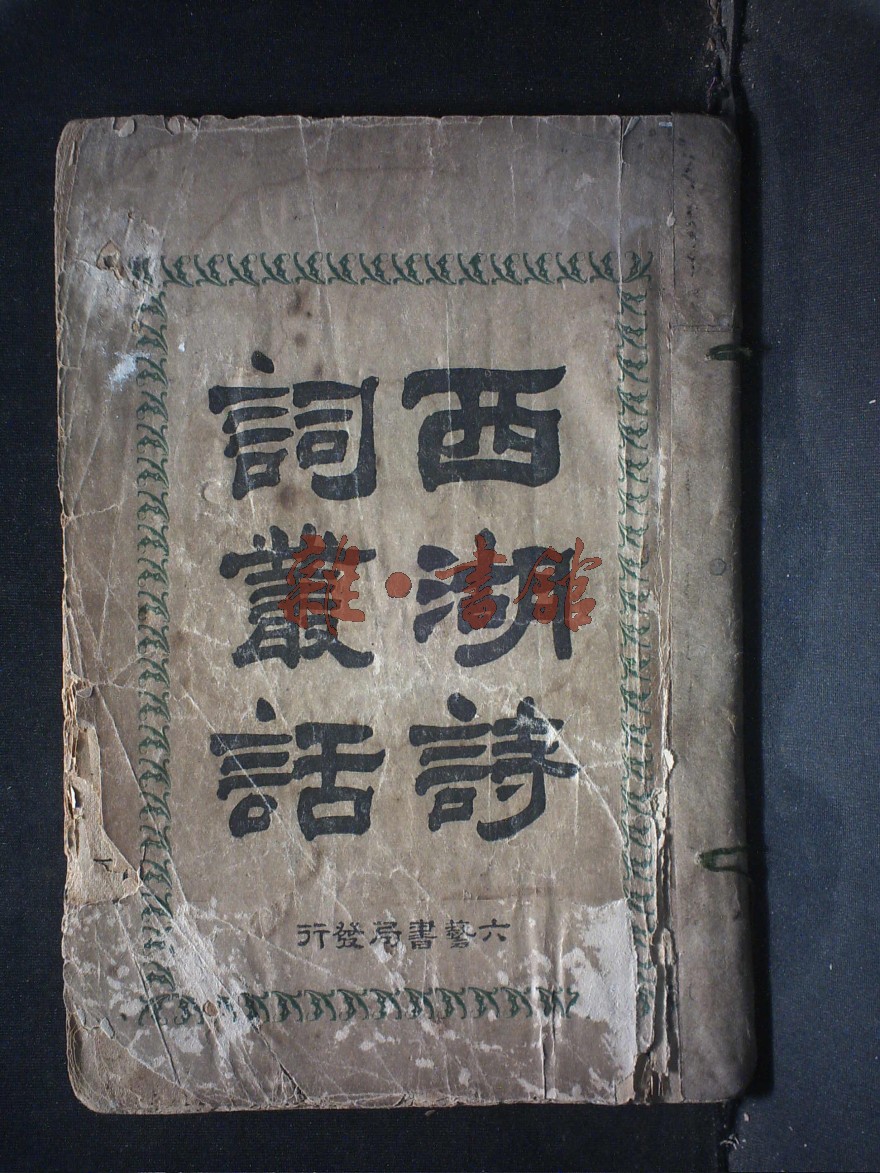 西湖詩
詞叢話
六藝書局發行
雜·書館